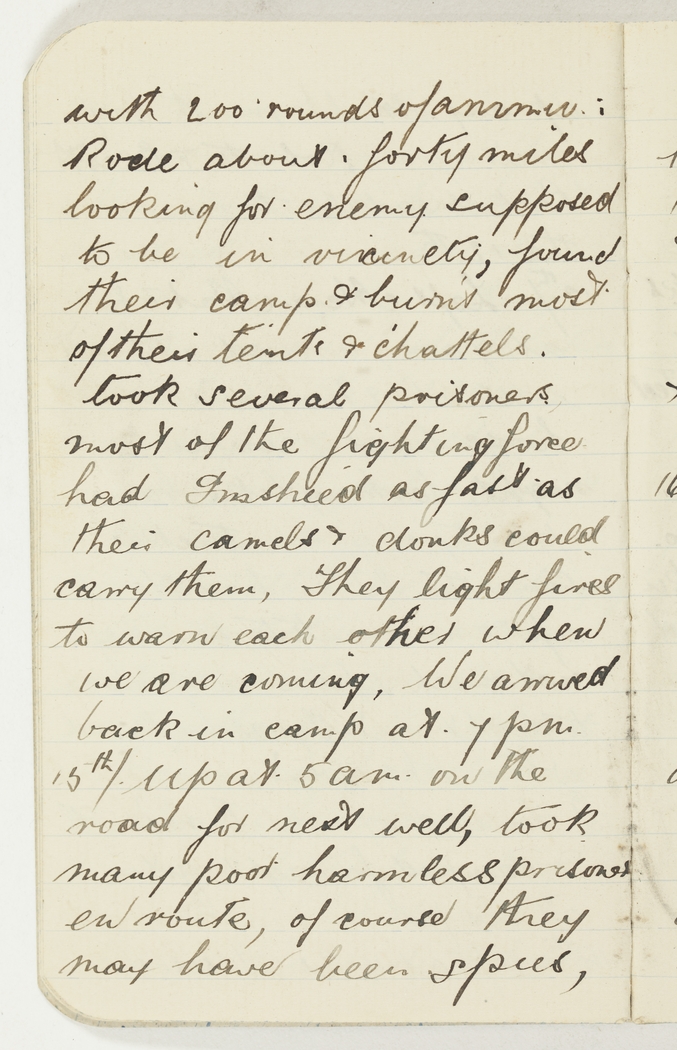 with 200 rounds of ammu. :
Rode about. forty miles
looking for enemy supposed
to be in vicinety, found
their camp & burnt most
of their tents & chattels.
took several prisoners,
most of the fighting force
had Imshied as fast as
their camels & donks could
carry them, They light fires
to warn each other when
we are coming, We arrived
back in camp at. 7 pm.
15th/ Up at 5 am. on the
road for next well, took
many poor harmless prisoners
en route, of course they
may have been spies,